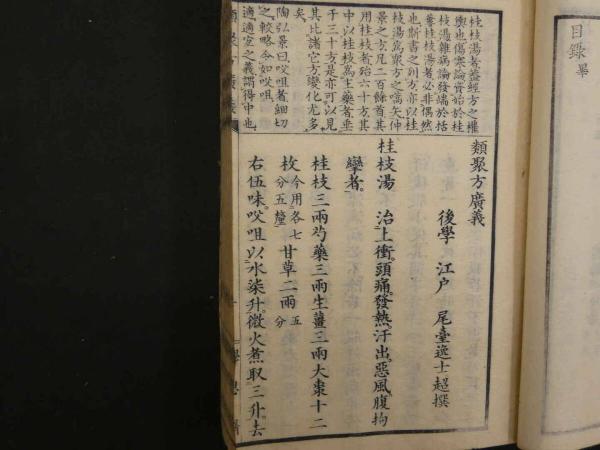 目錄畢
桂枝湯者蓋經方之權
輿也傷寒論資始於桂
枝湯雜病論發端於括
蔞桂枝湯者必非偶然
也斯書之列方亦以桂
枝湯爲衆方之嚆矢仲
景之方凡二百餘首其
用桂枝者殆六十方其
中以桂枝爲主藥者垂
于三十方是亦可以見
其比諸它方變化尤多
矣
陶弘景曰㕮咀者細切
之較略令如㕮咀
適適宜之義謂得中也
類聚方廣義
後學 江戸 尾臺逸士超撰
桂枝湯 治上衝頭痛發熱汗出惡風腹拘
攣者
桂枝三兩芍藥三兩生薑三兩大棗十二
枚今用各七分五釐甘草二兩五分
右伍味㕮咀以水柒升微火煮取三升去